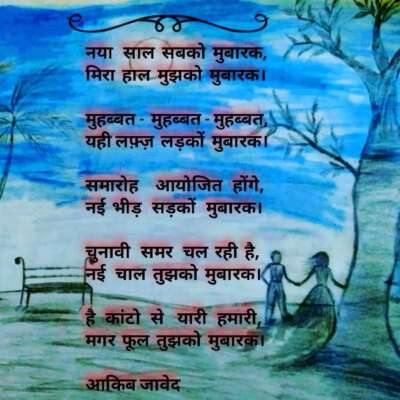 नया साल सबको मुबारक,
मिरा हाल मुझको मुबारक।
मुहब्बत - मुहब्बत - मुहब्बत,
यही लफ़्ज़ लड़कों मुबारक।
समारोह आयोजित होंगे,
नई भीड़ सड़कों मुबारक।
चुनावी समर चल रही है,
नई चाल तुझको मुबारक।
है कांटो से यारी हमारी,
मगर फूल तुझको मुबारक।
आकिब जावेद